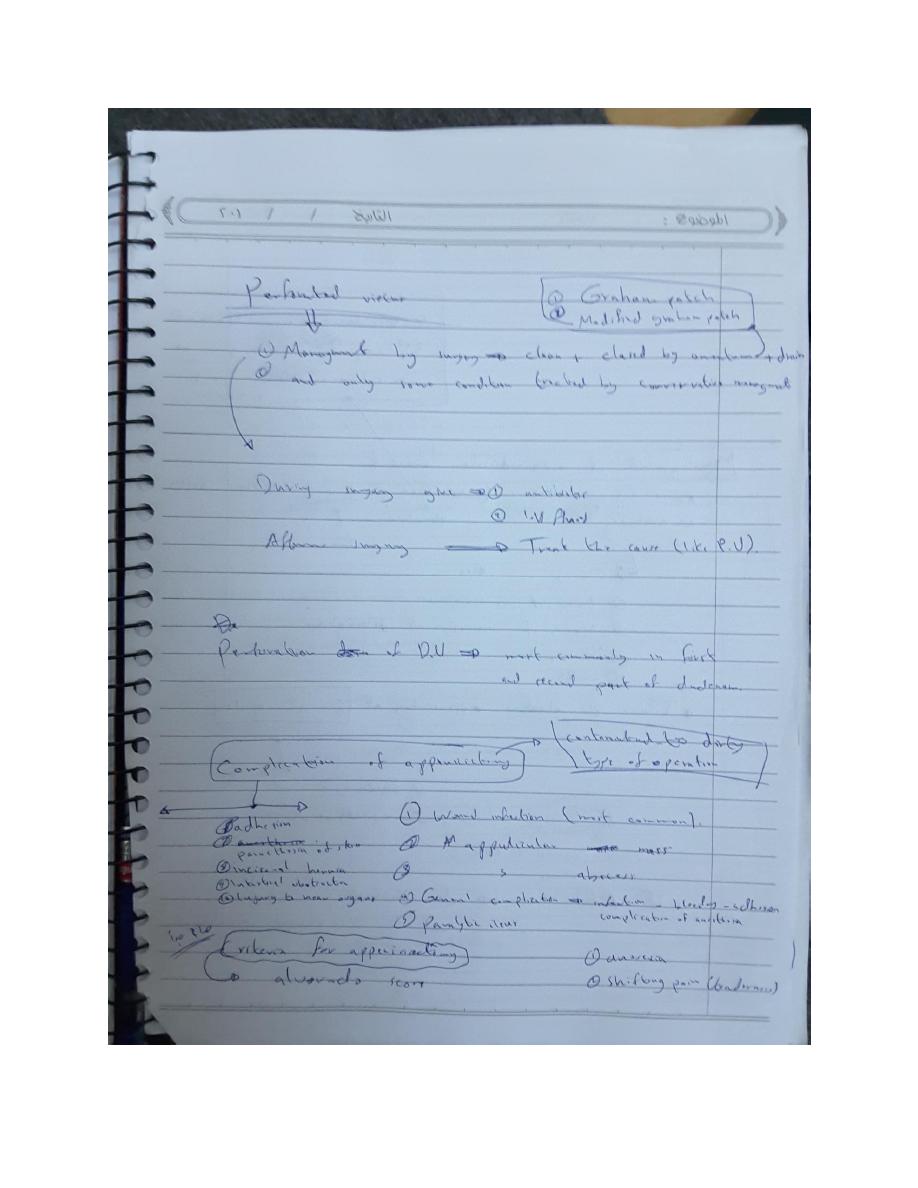 الموضوع : التاريخ / / ٢٠١
Perforated viscus
① Graham patch
② Modified graham patch
① Managment by surgery → clean + closed by omentum + drain
② and only some condition treated by conservative managment
During surgery give → ①
② I.V fluid
After surgery → Treat the cause (like P.U).
Perforation of D.U ⇒ most commonly in first
and second part of duodenum.
Complication of
→ contaminated to dirty
type of operation
① adhesion
②
③ incisional hernia
④ intestinal obstruction
⑤ injury to near organs
① Wound infection (most common).
② mass
③ abscess
④ General complication → infection - bleeding - adhesion
complication of
⑤ Paralytic ileus
Criteria for
→ alvorado score
① anorexia
② shifting pain (tenderness)